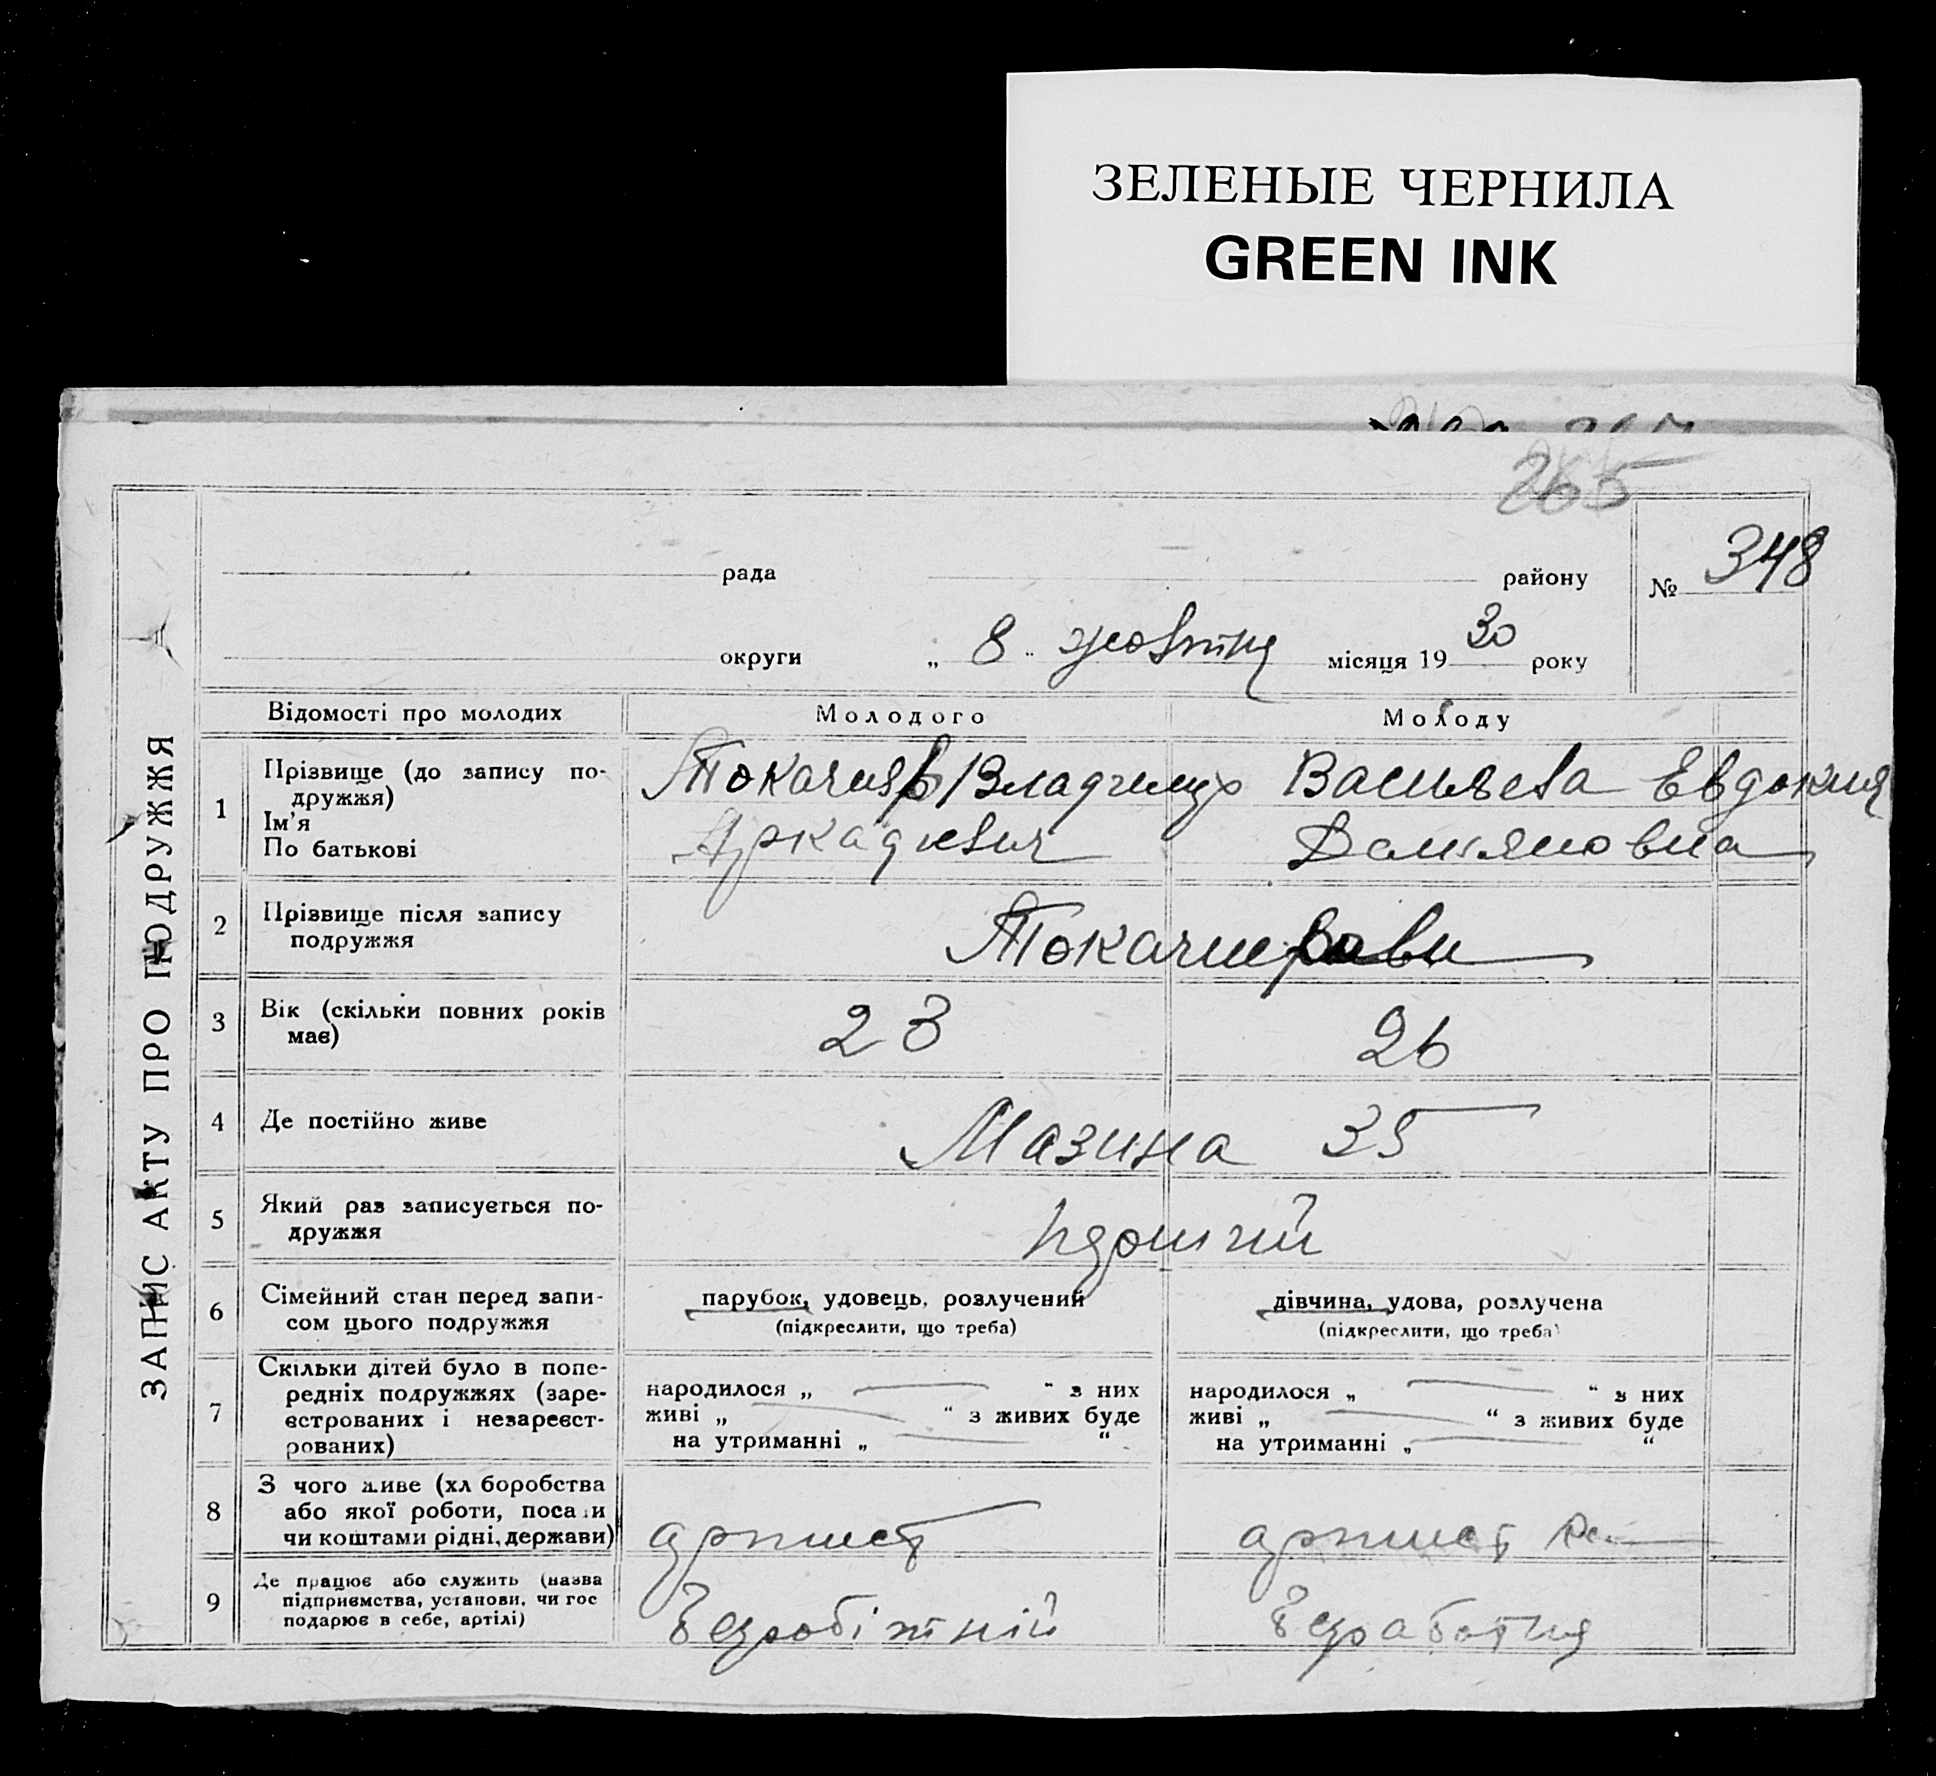 ЗЕЛЕНЫЕ ЧЕРНИЛА
GREEN INK
265
рада району № 348
округи „ 8 " жовтня місяця 19 30 року
ЗАПИС АКТУ ПРО ПОДРУЖЖЯ
Відомості про молодих Молодого Молоду
1 Прізвище (до запису по-
дружжя)
Ім'я
По батькові
Владимир
Аркадиевич
Васильева Евдокия
Демьяновна
2 Прізвище після запису
подружжя
3 Вік (скільки повних років
має)
23 26
4 Де постійно живе Мазина 35
5 Який раз записується по-
дружжя
перший
6 Сімейний стан перед запи-
сом цього подружжя
парубок, удовець, розлучений
(підкреслити, що треба)
дівчина, удова, розлучена
(підкреслити, що треба)
7 Скільки дітей було в попе-
редніх подружжях (заре-
єстрованих і незареєст-
рованих)
народилося „ — “ з них
живі „ — “ з живих буде
на утриманні „ — “
народилося „ — “ з них
живі „ — “ з живих буде
на утриманні „ — “
8 З чого живе (хліборобства
або якої роботи, посади
чи коштами рідні, держави)
артист артист
9 Де працює або служить (назва
підприємства, установи, чи гос
подарює в себе, артілі)
безробітній безработня